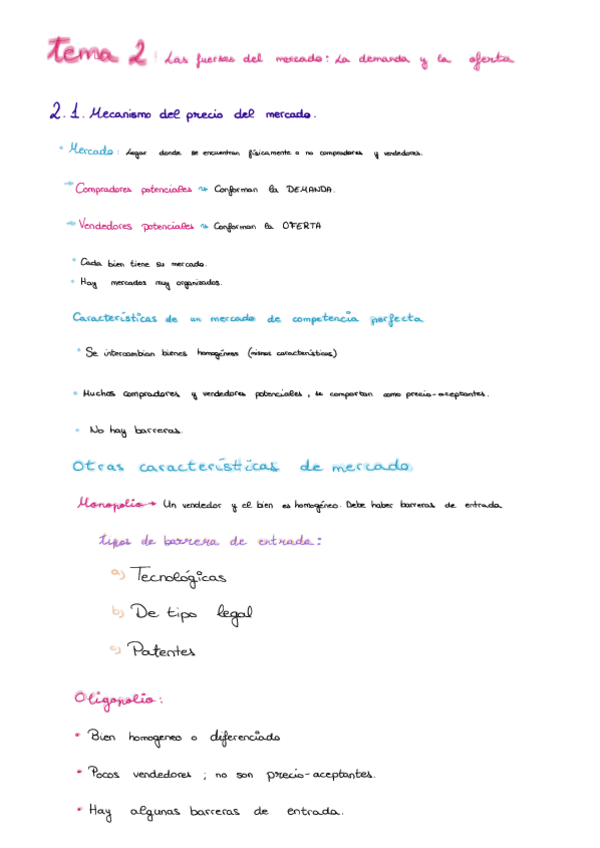 tema 2: Las fuerzas del mercado: La demanda y la oferta
2.1. Mecanismo del precio del mercado.
• Mercado: Lugar donde se encuentran físicamente o no compradores y vendedores.
→ Compradores potenciales ↝ Conforman la DEMANDA.
→ Vendedores potenciales ↝ Conforman la OFERTA
• Cada bien tiene su mercado.
• Hay mercados muy organizados.
Características de un mercado de competencia perfecta
• Se intercambian bienes homogéneos (mismas características)
• Muchos compradores y vendedores potenciales, se comportan como precio-aceptantes.
• No hay barreras.
Otras características de mercado
Monopolio → Un vendedor y el bien es homogéneo. Debe haber barreras de entrada
tipos de barrera de entrada:
a) Tecnológicas
b) De tipo legal
c) Patentes
Oligopolio:
• Bien homogeneo o diferenciado
• Pocos vendedores; no son precio-aceptantes.
• Hay algunas barreras de entrada.